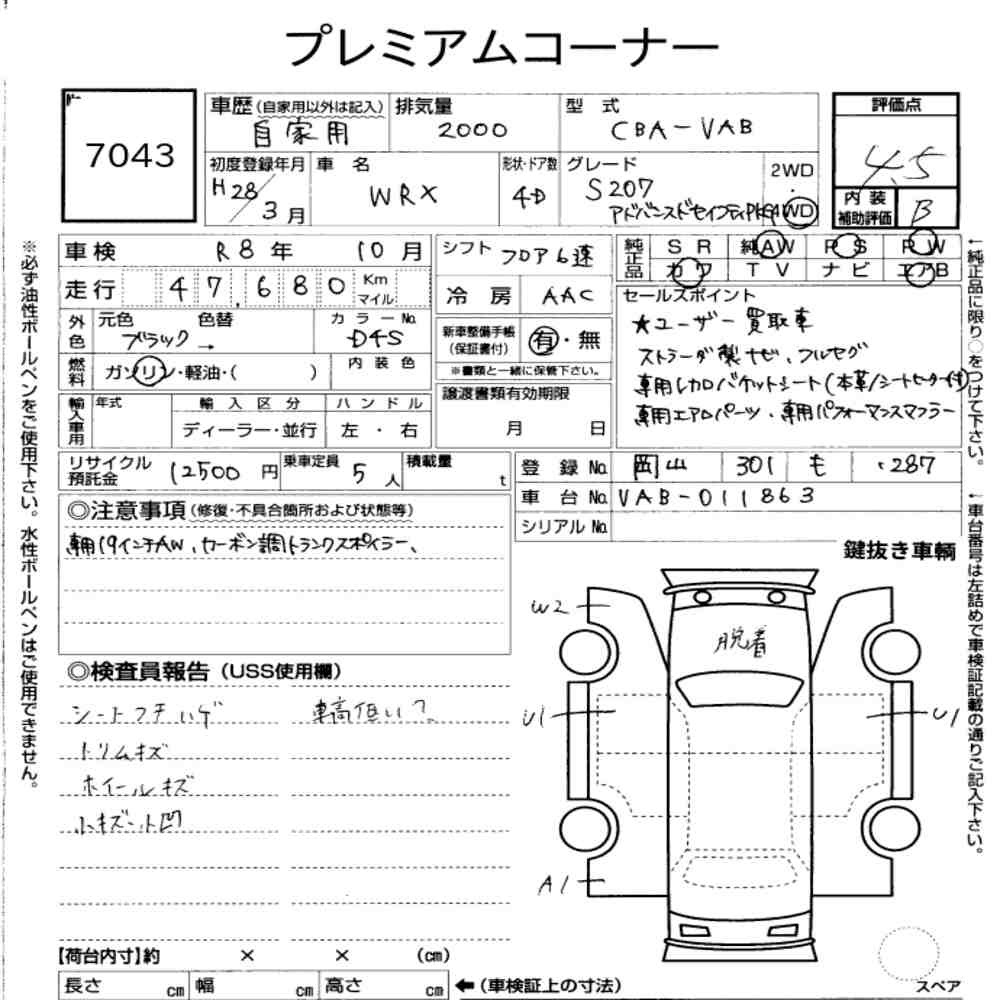 プレミアムコーナー
7043
車歴(自家用以外は記入) 自家用
排気量 2000
型式 CBA-VAB
評価点 4.5
内装補助評価 B
初度登録年月 H28/3月
車名 WRX
形状・ドア数 4D
グレード S207
アドバンスドセイフティPKG
2WD・4WD
車検 R8年 10月
走行 47,680 Km マイル
外色 元色 ブラック → 色替
カラーNo. D4S
燃料 ガソリン・軽油・( )
内装色
輸入車用 年式 輸入区分 ハンドル
ディーラー・並行 左・右
シフト フロア6速
冷房 AAC
新車整備手帳(保証書付) 有・無
※書類と一緒に保管下さい。
譲渡書類有効期限
月 日
純正品 SR 純AW PS PW
カワ TV ナビ エアB
セールスポイント
★ユーザー買取車
ストラーダ製ナビ、フルセグ
専用レカロバケットシート(本革/シートヒーター付)
専用エアロパーツ・専用パフォーマンスマフラー
リサイクル預託金 12500円
乗車定員 5人
積載量 t
登録No. 岡山 301 も ・287
車台No. VAB-011863
シリアルNo.
◎注意事項(修復・不具合箇所および状態等)
専用19インチAW、カーボン調トランクスポイラー、
鍵抜き車輌
◎検査員報告(USS使用欄)
シートフチハゲ 車高低い?
トリムキズ
ホイールキズ
小キズ小凹
W2
脱着
U1
U1
A1
【荷台内寸】約 × × (cm)
長さ cm 幅 cm 高さ cm ←(車検証上の寸法)
スペア
※必ず油性ボールペンをご使用下さい。水性ボールペンはご使用できません。
←純正品に限り○をつけて下さい。
←車台番号は左詰めで車検証記載の通りご記入下さい。